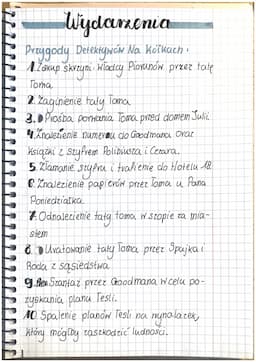 Wydarzenia
Przygody Detektywów Na Kółkach.
1. Zakup skrzyni Władcy Piorunów przez tatę
Toma.
2. Zaginienie taty Toma.
3. Prośba porwania Toma przed domem Julii.
4. Znalezienie numeru do Goodmana oraz
książki z szyfrem Polibiusza i Cezara.
5. Złamanie szyfru i trafienie do Hotelu 12.
6. Znalezienie papierów przez Toma u Pana
Poniedziałka.
7. Odnalezienie taty toma w szopie za mia-
stem
8. Uratowanie taty Toma przez Spajka i
Roda z sąsiedztwa
9. Szantaż przez Goodmana w celu po-
zyskania planu Tesli.
10 Spalenie planów Tesli na wynalazek,
który mógłby zaszkodzić ludności.